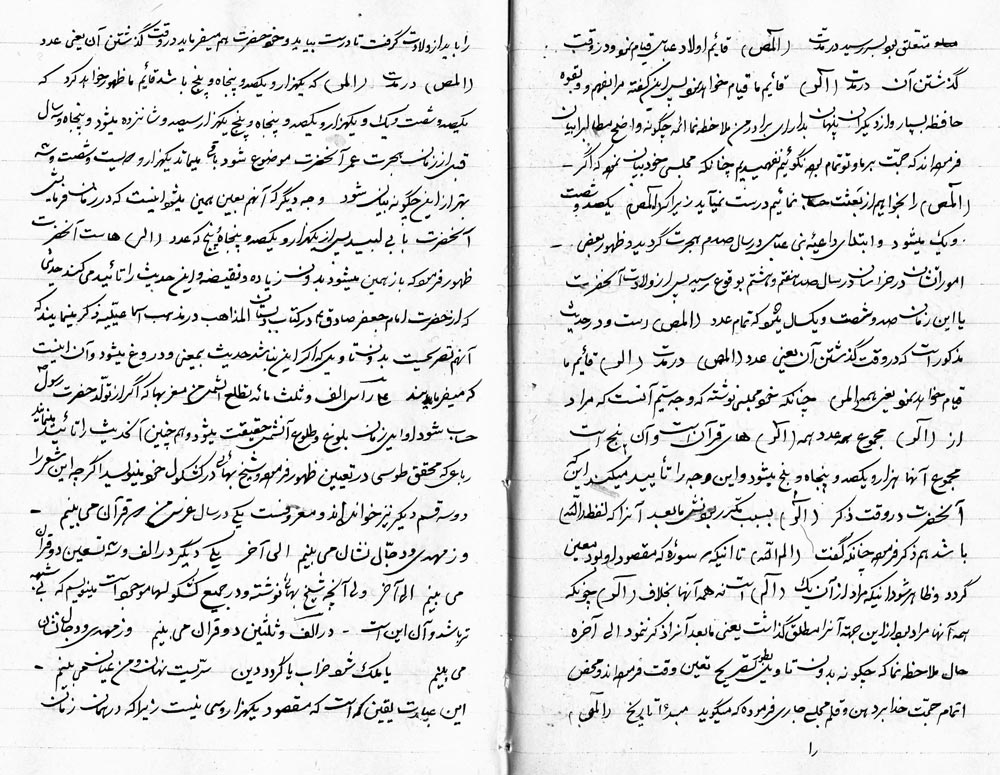 متعلق بود بسر رسید در مدت (المص) قائم اولاد عباس قیام نمود و در وقت
گذشتن آن در مدت (الر) قائم ما قیام میخواهد نمود پس این گفته مرا بفهم و
حافظه بسپار و از دیگران پنهان بدار ای برادر من ملاحظه نما که چگونه واضح مطالب را بیان
فرموده اند که حجت بر ما و تو تمام بوده نگوئیم نفهمیدیم چنانکه مجلسی خود بیان نموده که اگر
(المص) را بخواهیم از بعثت حساب نمائیم درست نمیآید زیرا که المص یکصد و شصت
و یک میشود و ابتدای داعیه بنی عباس در سال صدم هجرت گردید و ظهور بعضی
امور ایشان در خراسان در سال صد و هفتم و هشتم بوقوع رسید پس از ولادت آنحضرت
یا این زمان صد و شصت و یکسال میشود که تمام عدد (المص) است و در حدیث
مذکور است که در وقت گذشتن آن یعنی عدد (المص) در مدت (الر) قائم ما
قیام میخواهد نمود یعنی همه المر چنانکه خود مجلسی نوشته که وجه ستیم آنست که مراد
از (الر) مجموع عدد همه (الر) های قرآن است و آن پنج است
مجموع آنها هزار و یکصد و پنجاه و پنج میشود و این وجه را تأیید میکند اینکه
آنحضرت در وقت ذکر (الر) بسبب مکرر بودنش مابعد آنرا که لفظ الله
باشد هم ذکر فرموده چنانکه گفت (الم الله) تا اینکه سوره که مقصود او بود معین
گردد و ظاهر شود اینکه مراد از آن یک (الم) است نه همه آنها بخلاف (الر) چونکه
همه آنها مراد بود از این جهة آنرا مطلق گذاشت یعنی مابعد آنرا ذکر ننمود الی آخره
حال ملاحظه نما که چگونه بدون تأویل بطریق تصریح تعیین وقت فرموده اند و محض
اتمام حجت خدا بر دهن و قلم مجلسی جاری فرموده که میگوید مبدأ تاریخ (المص)
را
را باید از ولادت گرفت تا درست بیاید و خود حضرت هم میفرماید در وقت گذشتن آن یعنی عدد
(المص) در مدت (المر) که یکهزار و یکصد و پنجاه و پنج باشد قائم ما ظهور خواهد کرد که
یکصد و شصت و یک و یکهزار و یکصد و پنجاه و پنج یکهزار و سیصد و شانزده میشود و پنجاه و سال
قبل از زمان هجرت عمر آنحضرت موضوع شود باقی میماند یکهزار و دویست و شصت و سه
بهتر از این چگونه بیان شود وجه دیگر که آنهم بعین همین میشود اینست که در زمان فرمایش
آنحضرت با بی لبید پس از یکهزار و یکصد و پنجاه و پنج که عدد (الر) هاست آنحضرت
ظهور فرموده که باز همین میشود بدون زیاده و نقیصه و این حدیث را تأئید میکند حدیثی
که از حضرت امام جعفر صادق هم در کتاب دبستان المذاهب در مذهب اسماعیلیه ذکر مینمایند که
آنهم تصریحیست بدون تأویل که اگر این نباشد حدیث بیمعنی و دروغ میشود و آن اینست
که میفرمایند علی رأس الف و ثلث مائه تطلع الشمس من مغربها که اگر از تولد حضرت رسول ص
حساب شود اوایل زمان بلوغ و طلوع آنشمس حقیقت میشود و همچنین آنحدیث را تائید مینماید
رباعی که محقق طوسی در تعیین ظهور فرموده و شیخ بهائی در کشکول خود مینویسد اگر چه این شعر را
دو سه قسم دیگر نیز خوانده اند و معروفست یکی در سال غرس من دو قرآن می بینم
وز مهدی و دجال نشان می بینم الی آخر یکی دیگر در الف و سه تسعین دو قرآن
می بینم الی آخر ولی آنچه شیخ بهائی نوشته و در جمیع کشکول ها موجود است مینویسم که بی شبهه
تر باشد و آن این است - در الف و ثلثین دو قران می بینم وز مهدی و دجال نشان
می بینم یا ملک شود خراب یا گردد دین سریست نهان و من عیان می بینم
این عبارت یقین است که مقصود یکهزار و سی نیست زیرا که در همان زمان